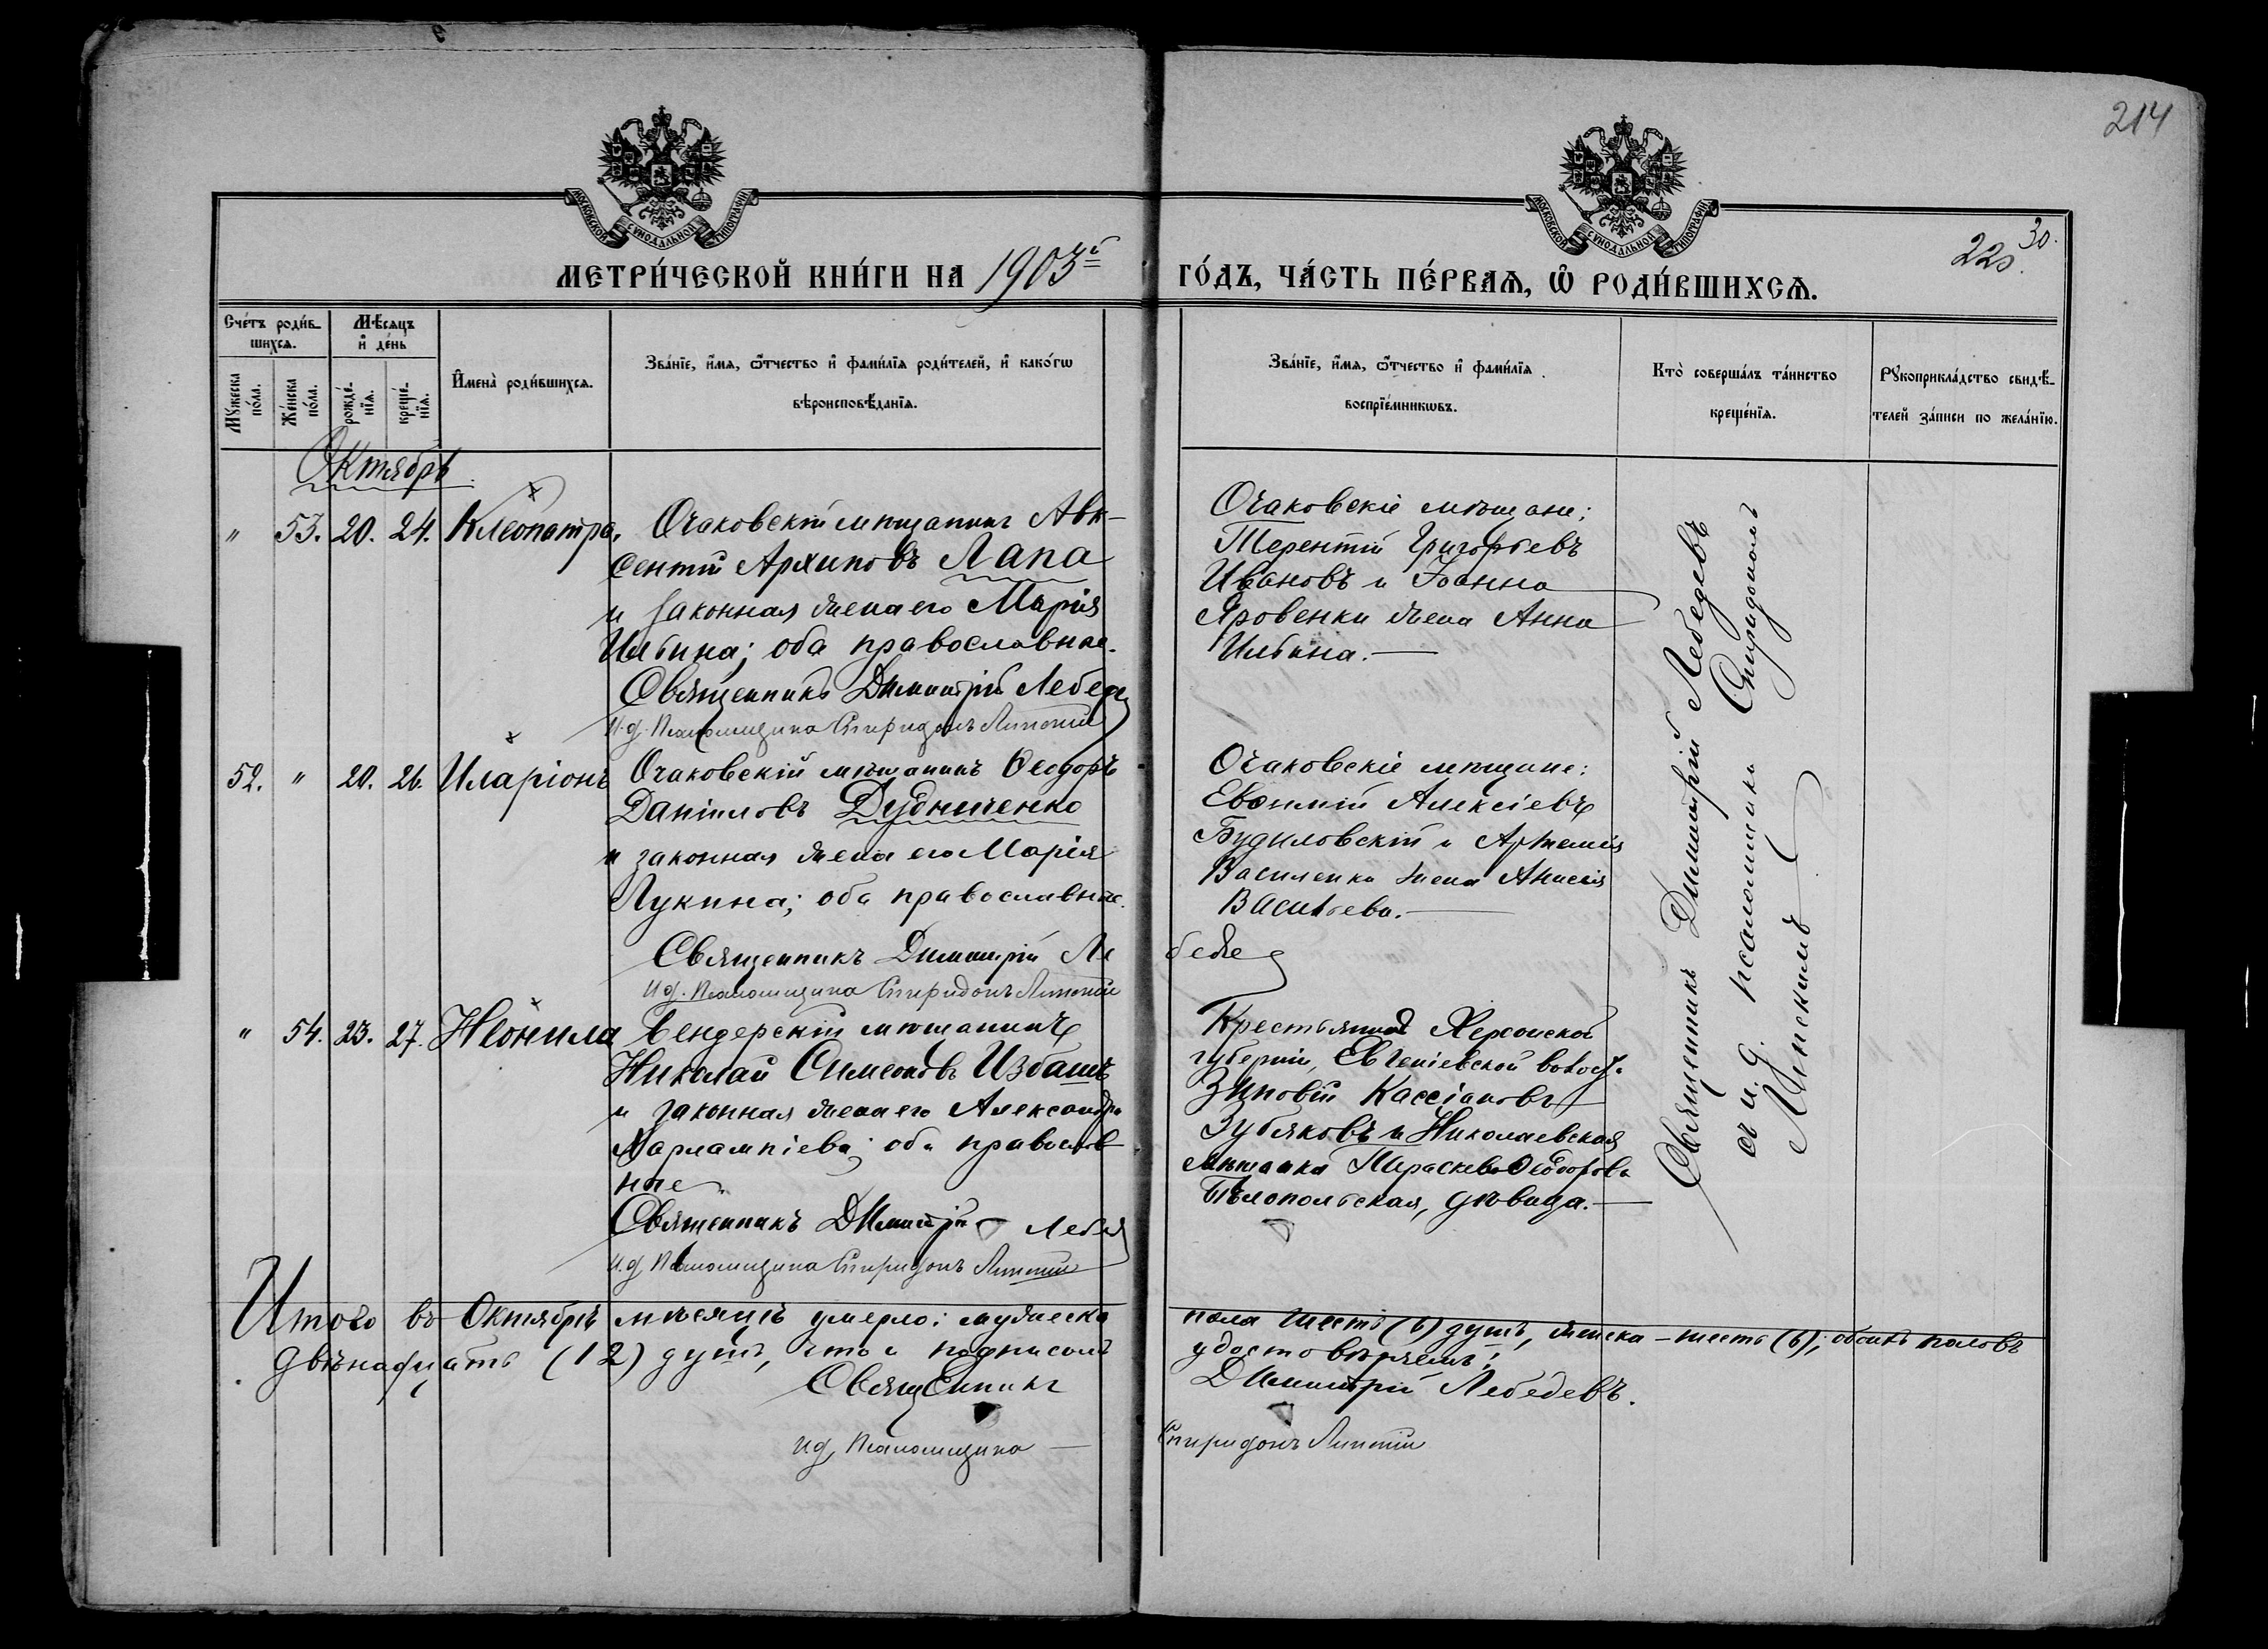 214
МОСКОВСКОЙ СѴНОДАЛЬНОЙ ТИПОГРАФІИ
МОСКОВСКОЙ СѴНОДАЛЬНОЙ ТИПОГРАФІИ
30.
220.
МЕТРИ́ЧЕСКОЙ КНИ́ГИ НА 1903й ГО́ДЪ, ЧА́СТЬ ПЕ́РВАѦ, Ѽ РОДИ́ВШИХСѦ.
Сче́тъ роди́в-
шихсѧ.
Мѣ́сяцъ
и҆ де́нь
Мꙋжеска по́ла.
Же́нска по́ла.
рожде́-
нїѧ.
креще́-
нїѧ.
И҆мена̀ роди́вшихсѧ.
Зва́нїе, и҆́мѧ, ѻ҆́тчество и҆ фами́лїѧ роди́телей, и҆ како́гѡ
вѣроисповѣ́данїѧ.
Зва́нїе, и҆́мѧ, ѻ҆́тчество и҆ фами́лїѧ
воспрїе́мникѡвъ.
Кто̀ соверша́лъ та́инство
креще́нїѧ.
Рꙋкоприкла́дство свидѣ́-
телей за́писи по жела́нїю.
Октябрь
" 53. 20. 24. Клеопатра.
Очаковскій мѣщанинъ Авк-
сентій Архиповъ Лапа
и законная жена его Марія
Ильина; оба православные.
Священникъ Димитрій Лебедев
И. д. Псаломщика Спиридонъ Липскій
Очаковскіе мѣщане:
Терентій Григорьевъ
Ивановъ и Іоанна
Яровенки жена Анна
Ильина.
52. " 20. 26. Иларіонъ
Очаковскій мѣщанинъ Ѳеодоръ
Даніиловъ Дудниченко
и законная жена его Марія
Лукина; оба православные.
Священникъ Димитрій Ле
бедев
И. д. Псаломщика Спиридонъ Липскій
Очаковскіе мѣщане:
Евѳимій Алексіевъ
Будиловскій и Артемія
Василенко жена Анисія
Васильева.
" 54. 23. 27. Неонила
Бендерскій мѣщанинъ
Николай Симеоновъ Избашъ
и законная жена его Александра
Харлампіева; оба православ
ные.
Священникъ Димитрій Лебед
И. д. Псаломщика Спиридонъ Липскій
Крестьянинъ Херсонской
губерніи, Евгеніевской волост.
Зиновій Кассіановъ
Зубяковъ и Николаевская
мѣщанка Параскева Ѳеодоров.
Бѣлопольская, дѣвица.
Священникъ Димитрій Лебедевъ
съ и. д. псаломщика Спиридономъ
Липскимъ
Итого въ Октябрѣ мѣсяцѣ умерло: мужеска пола шесть (6) душъ, женска – шесть (6); обоихъ половъ
двѣнадцать (12) душъ, что и подписомъ удостовѣряемъ:
Священникъ Димитрій Лебедевъ.
и д. Псаломщика Спиридонъ Липскій